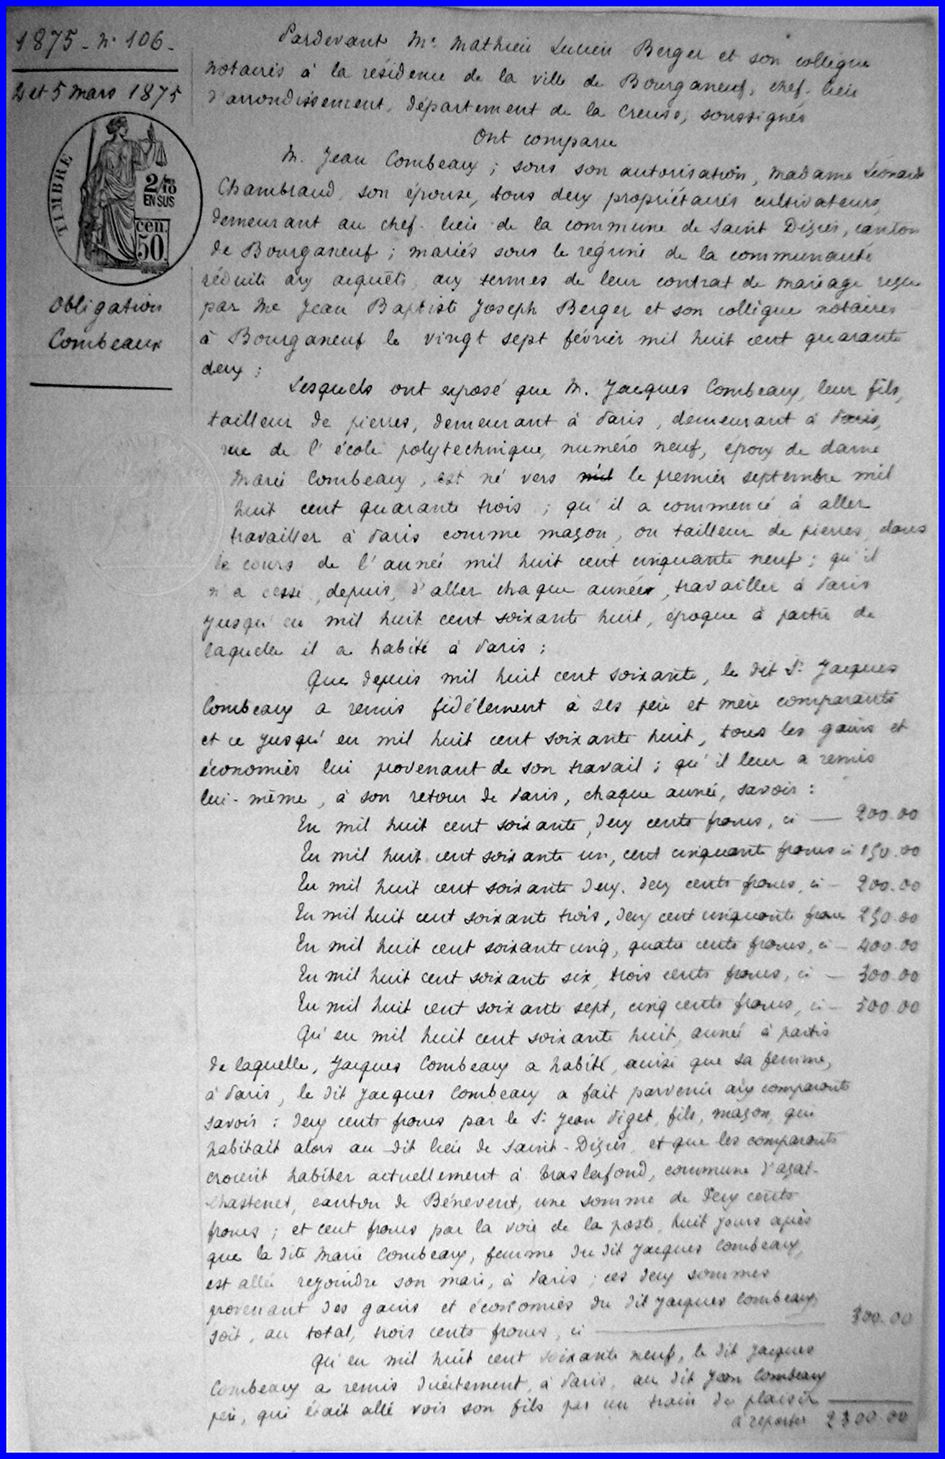 1875 - N° 106 -
2 et 5 mars 1875
TIMBRE
2/10
EN SUS
50 cen.
Obligation
Combeaux
Pardevant Me Mathieu Lucien Berger et son collègue
notaires à la résidence de la ville de Bourganeuf, chef-lieu
d'arrondissement, département de la Creuse, soussignés
Ont comparu
M. Jean Combeaux ; sous son autorisation, Madame Léonarde
Chambraud, son épouse, tous deux propriétaires cultivateurs,
demeurant au chef-lieu de la commune de Saint Dizier, canton
de Bourganeuf ; mariés sous le régime de la communauté
réduite aux acquêts aux termes de leur contrat de mariage reçu
par Me Jean Baptiste Joseph Berger et son collègue notaires
à Bourganeuf le vingt sept février mil huit cent quarante
deux ;
Lesquels ont exposé que M. Jacques Combeaux, leur fils,
tailleur de pierres, demeurant à Paris, demeurant à Paris,
rue de l'école polytechnique, numéro neuf, époux de dame
Marie Combeaux, est né vers mil le premier septembre mil
huit cent quarante trois ; qu'il a commencé à aller
travailler à Paris comme maçon, ou tailleur de pierres, dans
le cours de l'année mil huit cent cinquante neuf ; qu'il
n'a cessé, depuis, d'aller chaque année, travailler à Paris
jusqu'en mil huit cent soixante huit, époque à partir de
laquelle il a habité à Paris ;
Que depuis mil huit cent soixante, le dit Sr Jacques
Combeaux a remis fidèlement à ses père et mère comparants
et ce jusqu'en mil huit cent soixante huit, tous les gains et
économies lui provenant de son travail ; qu'il leur a remis
lui-même, à son retour de Paris, chaque année, savoir :
En mil huit cent soixante, deux cents francs, ci — 200.00
En mil huit cent soixante un, cent cinquante francs ci 150.00
En mil huit cent soixante deux, deux cents francs, ci — 200.00
En mil huit cent soixante trois, deux cent cinquante francs 250.00
En mil huit cent soixante cinq, quatre cents francs, ci — 400.00
En mil huit cent soixante six, trois cents francs, ci — 300.00
En mil huit cent soixante sept, cinq cents francs, ci — 500.00
Qu'en mil huit cent soixante huit, année à partir
de laquelle, Jacques Combeaux a habité, ainsi que sa femme,
à Paris, le dit Jacques Combeaux a fait parvenir aux comparants
savoir : deux cents francs par le Sr Jean Piget, fils, maçon, qui
habitait alors au dit lieu de Saint-Dizier, et que les comparants
croient habiter actuellement à Traslafond, commune d'Azat-
Chastenet, canton de Bénévent, une somme de deux cents
francs ; et cent francs par la voie de la poste, huit jours après
que la dite Marie Combeaux, femme du dit Jacques Combeaux,
est allée rejoindre son mari, à Paris ; ces deux sommes
provenant des gains et économies du dit Jacques Combeaux,
soit, au total, trois cents francs, ci — 300.00
Qu'en mil huit cent soixante neuf, le dit Jacques
Combeaux a remis directement, à Paris, au dit Jean Combeaux
père, qui était allé voir son fils par un train de plaisir
à reporter 2300.00